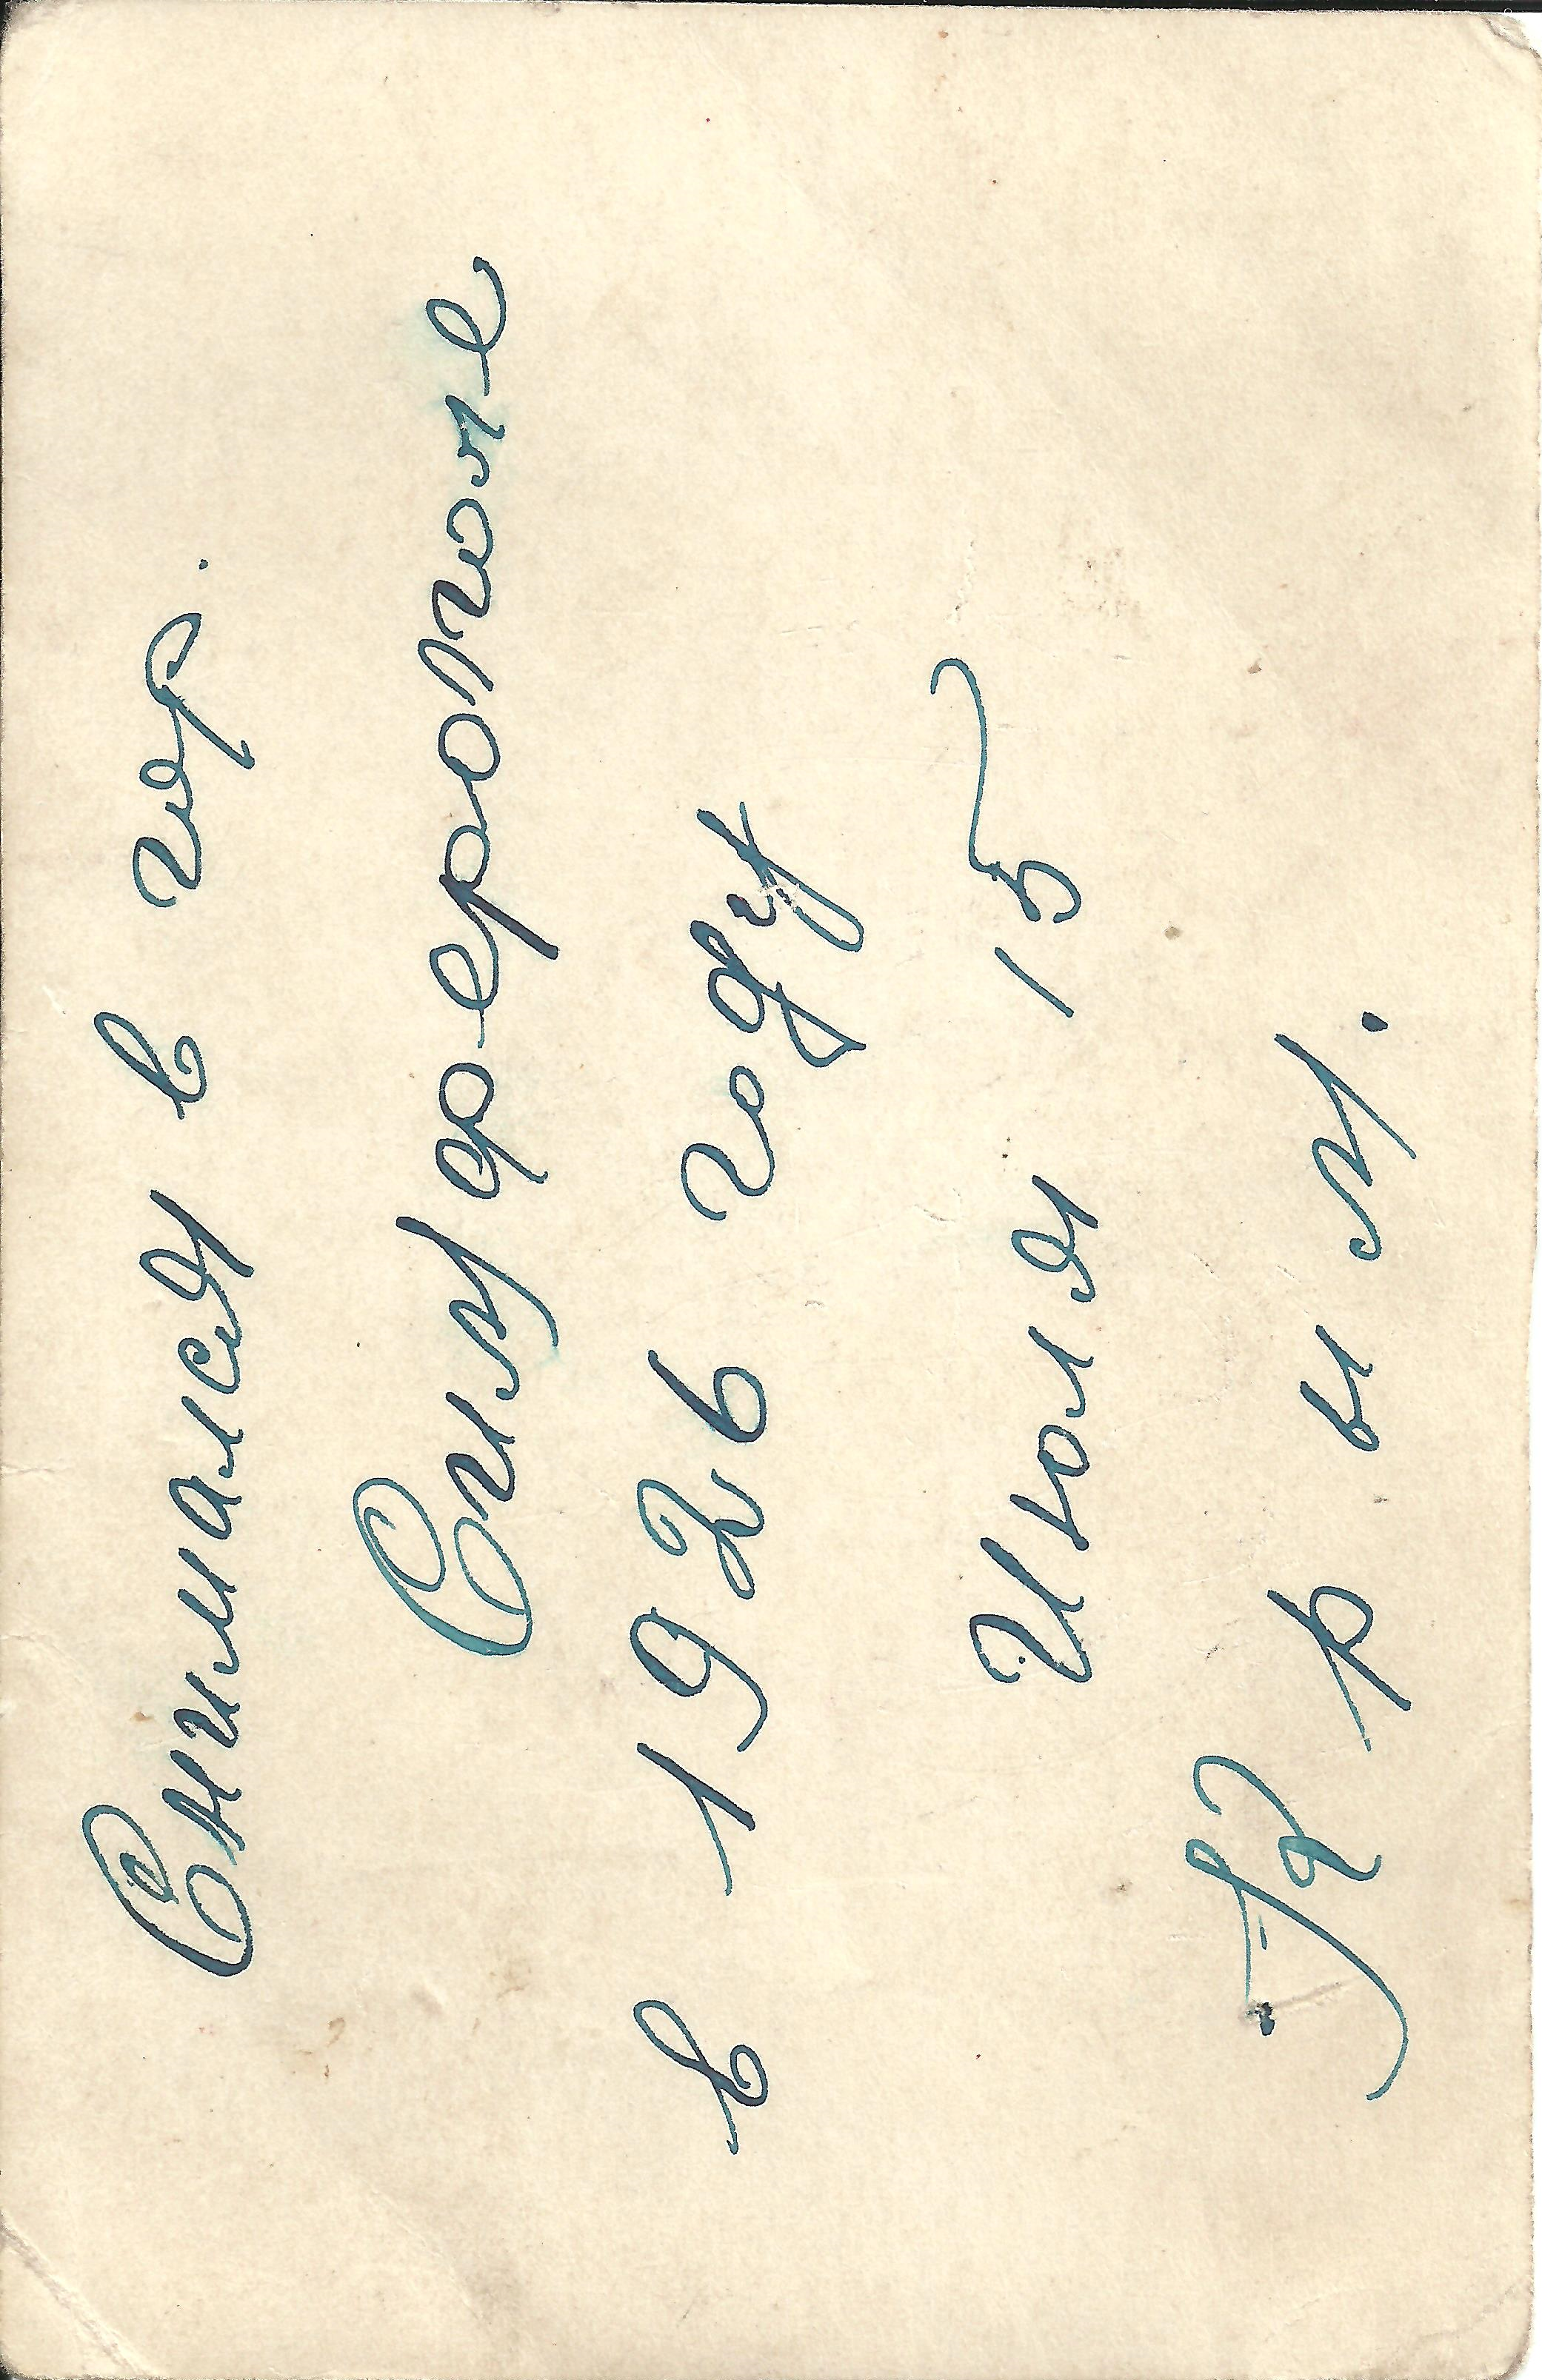 Снимался в гор.
Симферополе
в 1926 году
Июля 15
Крым.